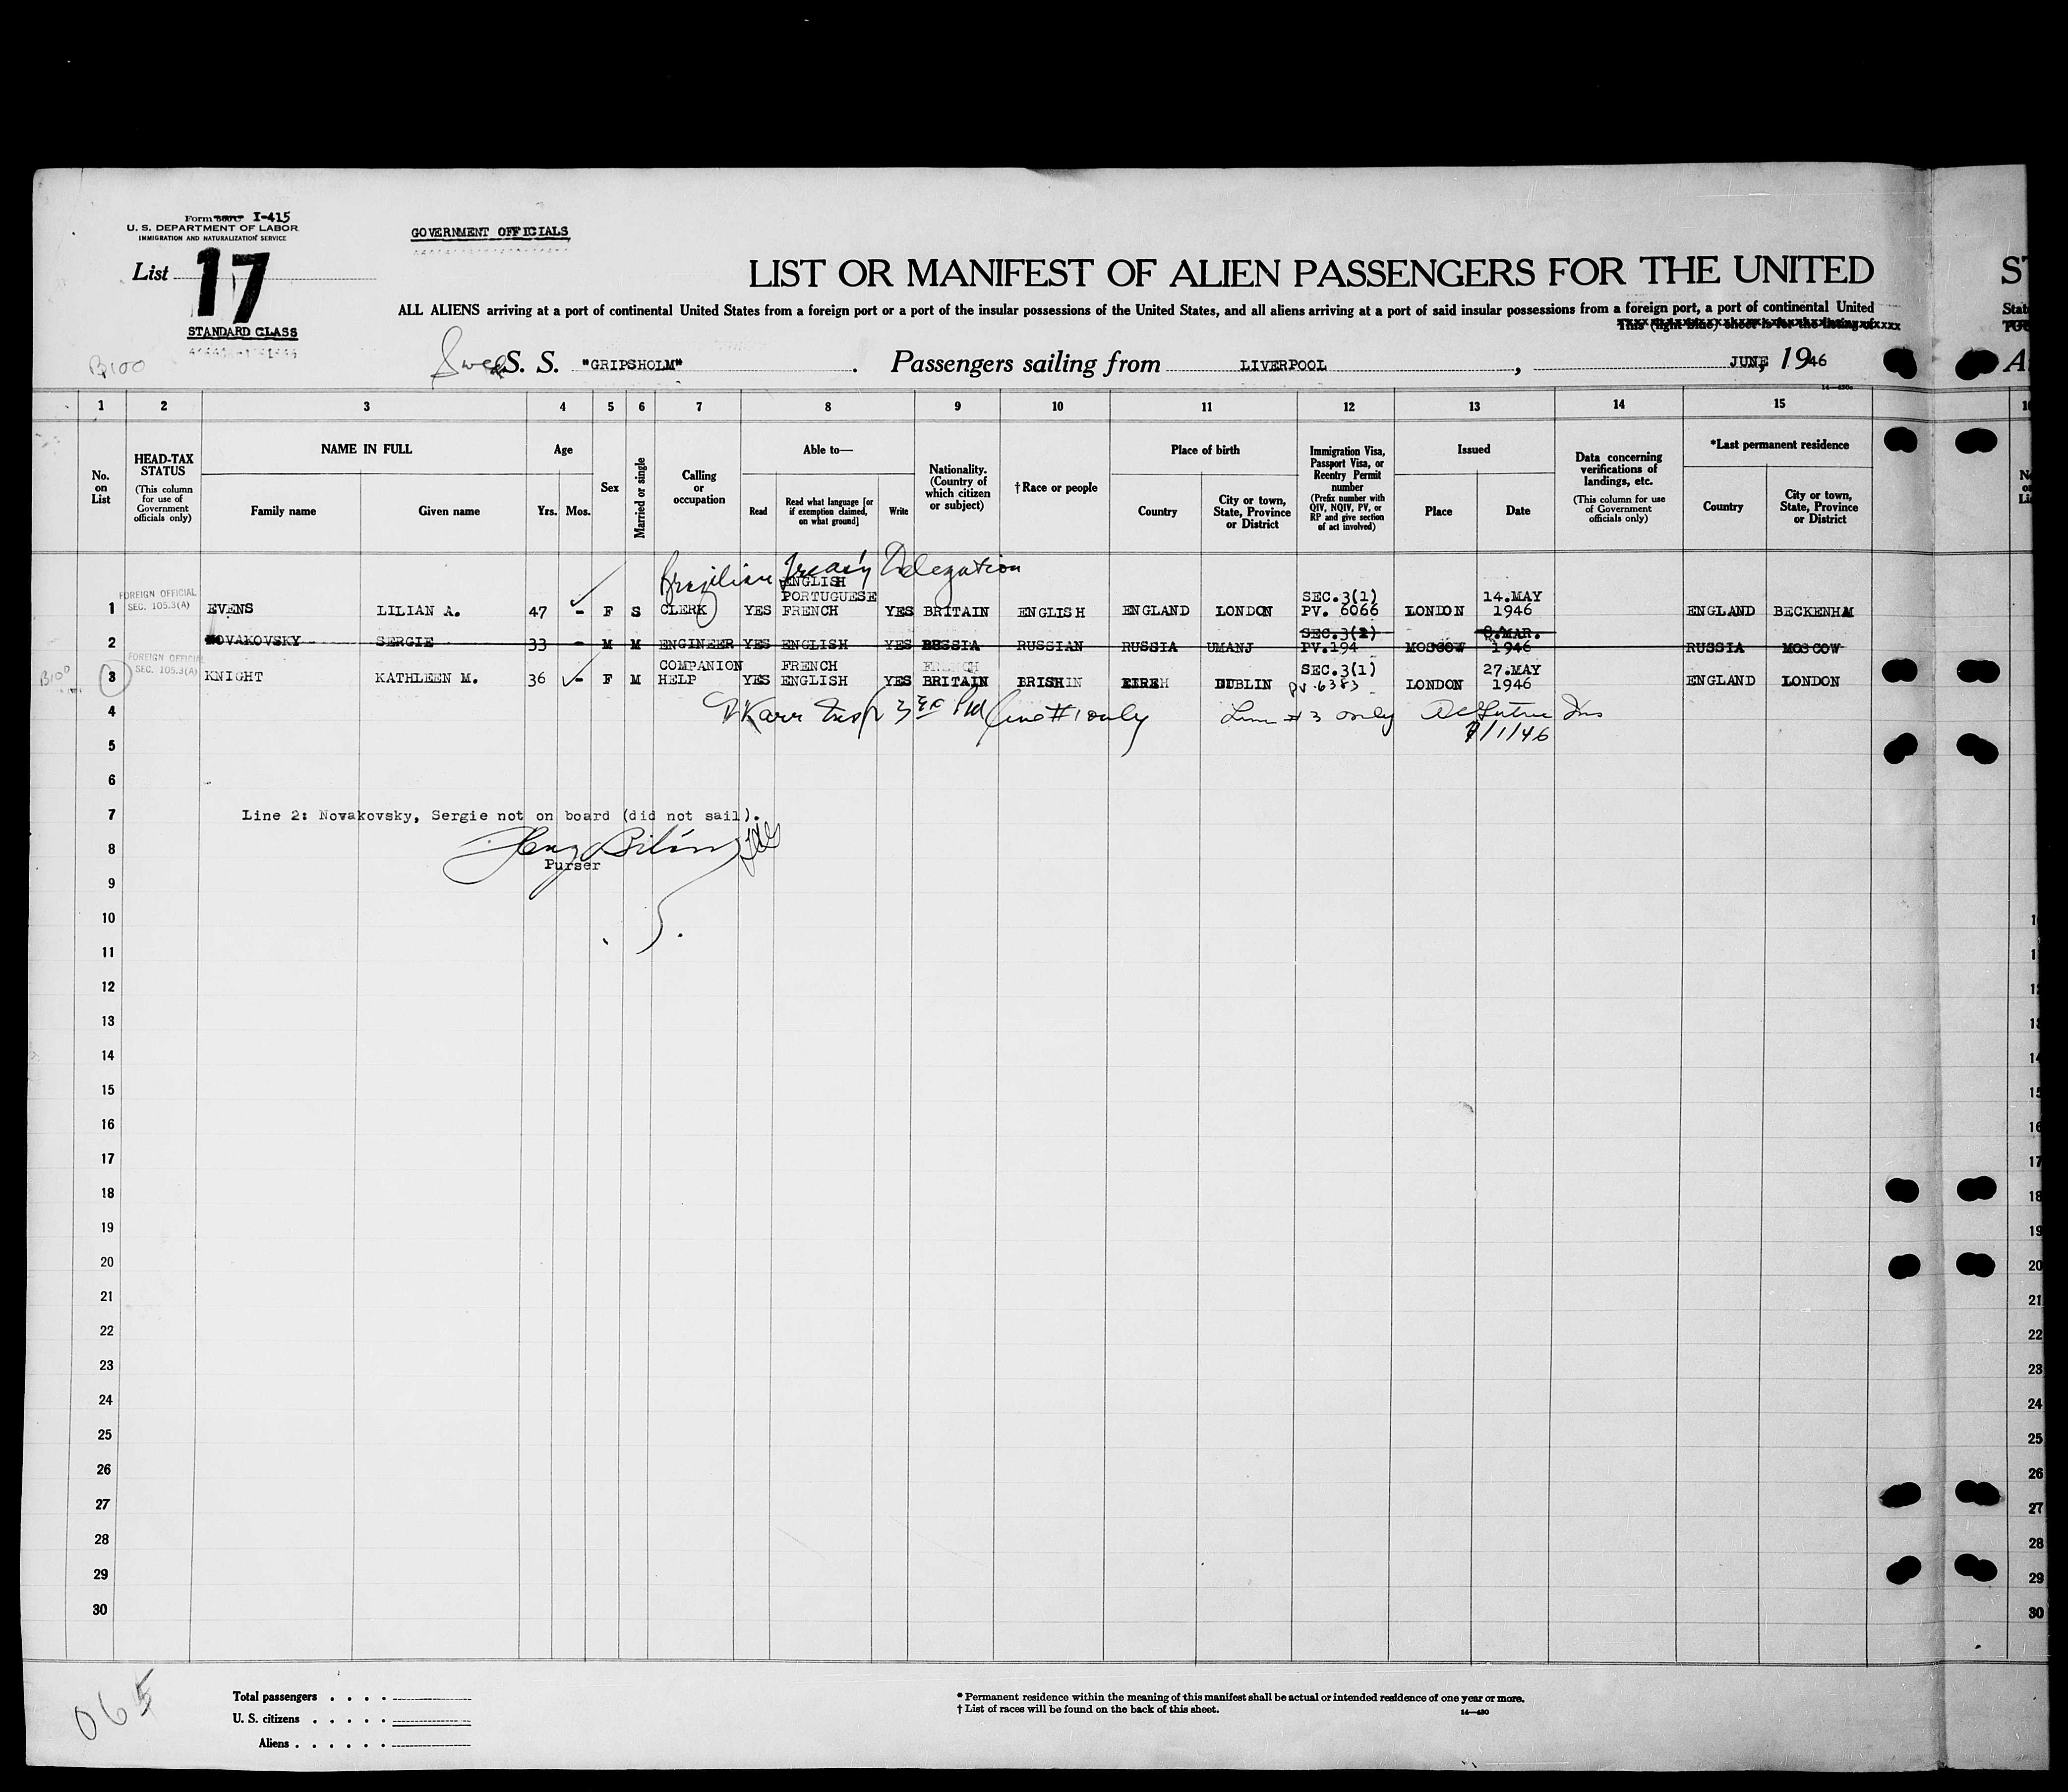 Form I-415
U. S. DEPARTMENT OF LABOR
IMMIGRATION AND NATURALIZATION SERVICE
GOVERNMENT OFFICIALS
List 17
STANDARD CLASS
LIST OR MANIFEST OF ALIEN PASSENGERS FOR THE UNITED
ST
ALL ALIENS arriving at a port of continental United States from a foreign port or a port of the insular possessions of the United States, and all aliens arriving at a port of said insular possessions from a foreign port, a port of continental United
State
This (light blue) sheet is for the listing of
B100
Swed S. S. "GRIPSHOLM" . Passengers sailing from LIVERPOOL , JUNE, 1946
1 2 3 4 5 6 7 8 9 10 11 12 13 14 15
No. on List
HEAD-TAX STATUS
(This column for use of Government officials only)
NAME IN FULL
Family name Given name
Age
Yrs. Mos.
Sex
Married or single
Calling or occupation
Able to—
Read
Read what language [or if exemption claimed, on what ground]
Write
Nationality. (Country of which citizen or subject)
†Race or people
Place of birth
Country
City or town, State, Province or District
Immigration Visa, Passport Visa, or Reentry Permit number
(Prefix number with QIV, NQIV, PV, or RP and give section of act involved)
Issued
Place Date
Data concerning verifications of landings, etc.
(This column for use of Government officials only)
*Last permanent residence
Country
City or town, State, Province or District
Brazilian Treasy Delegation
ENGLISH
FOREIGN OFFICIAL PORTUGUESE SEC.3(1) 14.MAY
1 SEC. 105.3(A) EVENS LILIAN A. 47 - F S CLERK YES FRENCH YES BRITAIN ENGLISH ENGLAND LONDON PV. 6066 LONDON 1946 ENGLAND BECKENHAM
SEC.3(2) 8.MAR.
2 NOVAKOVSKY SERGIE 33 - M M ENGINEER YES ENGLISH YES RUSSIA RUSSIAN RUSSIA UMANJ PV.194 MOSCOW 1946 RUSSIA MOSCOW
FOREIGN OFFICIAL COMPANION FRENCH SEC.3(1) 27.MAY
B100 3 SEC. 105.3(A) KNIGHT KATHLEEN M. 36 - F M HELP YES ENGLISH YES BRITAIN IRISH EIRE DUBLIN PV.6383 LONDON 1946 ENGLAND LONDON
4 Karr Insp line #1 only Line #3 only Ins
5 7/1/46
6
7 Line 2: Novakovsky, Sergie not on board (did not sail).
8
Purser
9
10
11
12
13
14
15
16
17
18
19
20
21
22
23
24
25
26
27
28
29
30
065
Total passengers . . . .
U. S. citizens . . . . .
Aliens . . . . . .
* Permanent residence within the meaning of this manifest shall be actual or intended residence of one year or more.
† List of races will be found on the back of this sheet.
14—430